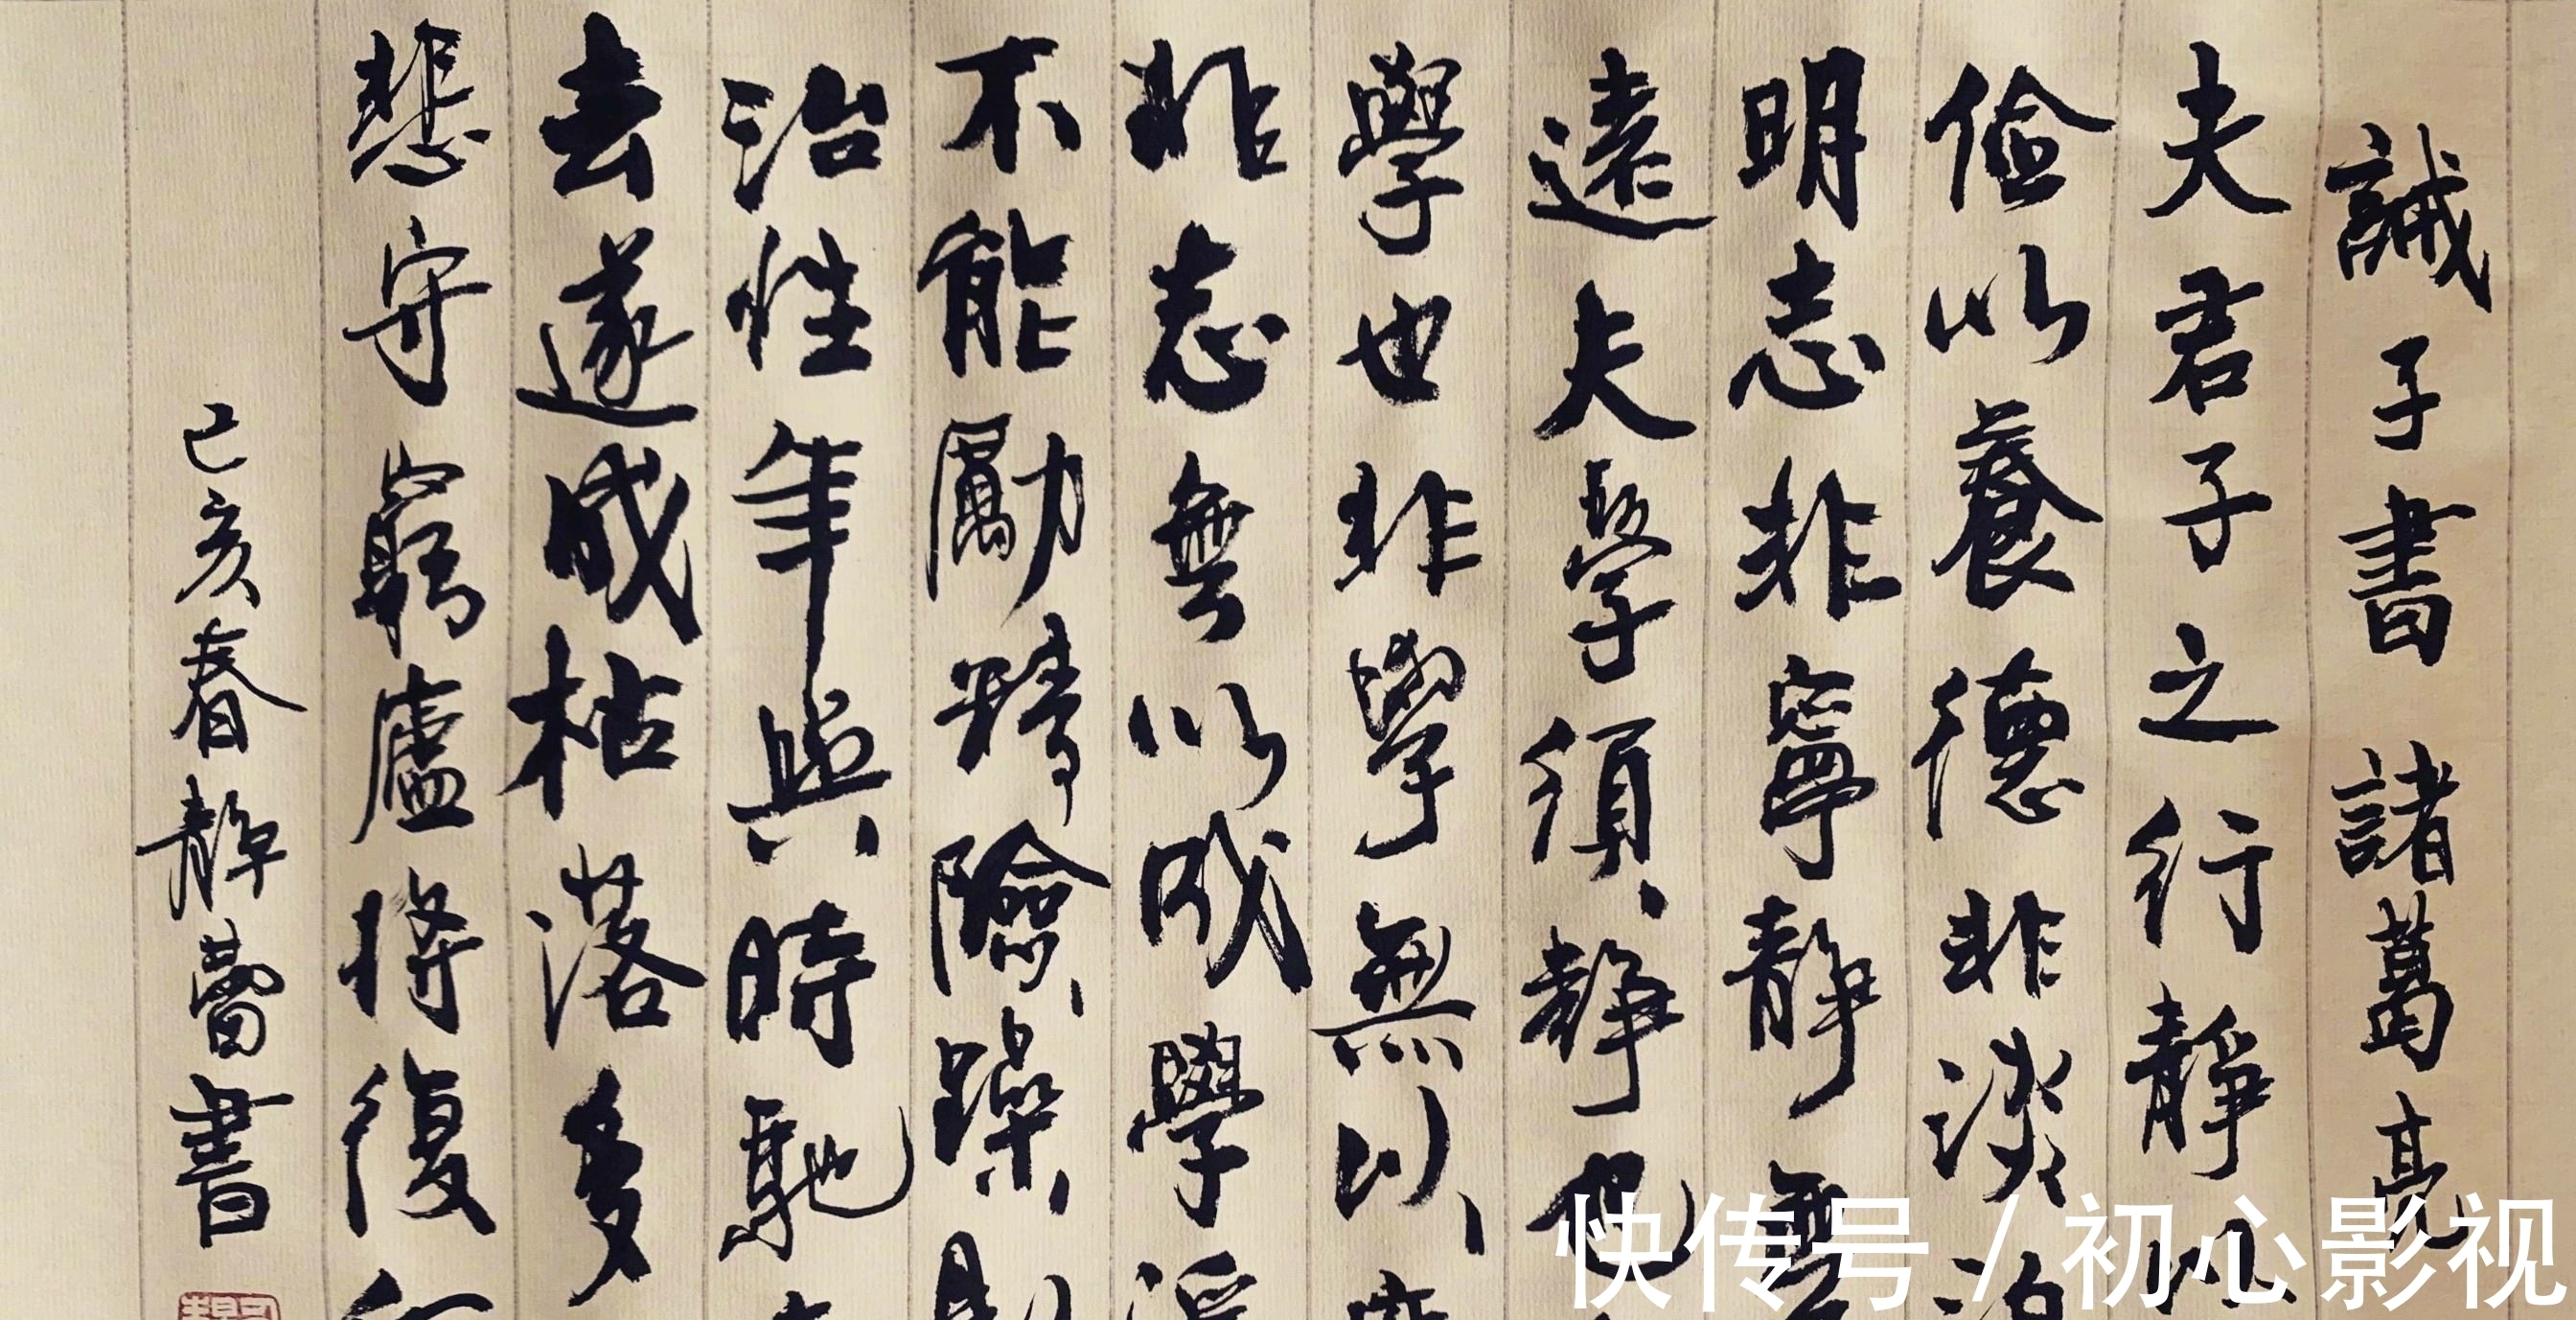 誡子書 諸葛亮
夫君子之行靜以
儉以養德非淡泊
明志非寧靜無
遠夫學須靜也
學也非學無以廣
非志無以成學淫
不能勵精險躁則
治性年與時馳
去遂成枯落多
悲守窮廬將復何
己亥春靜蕾書
快传号 / 初心影视